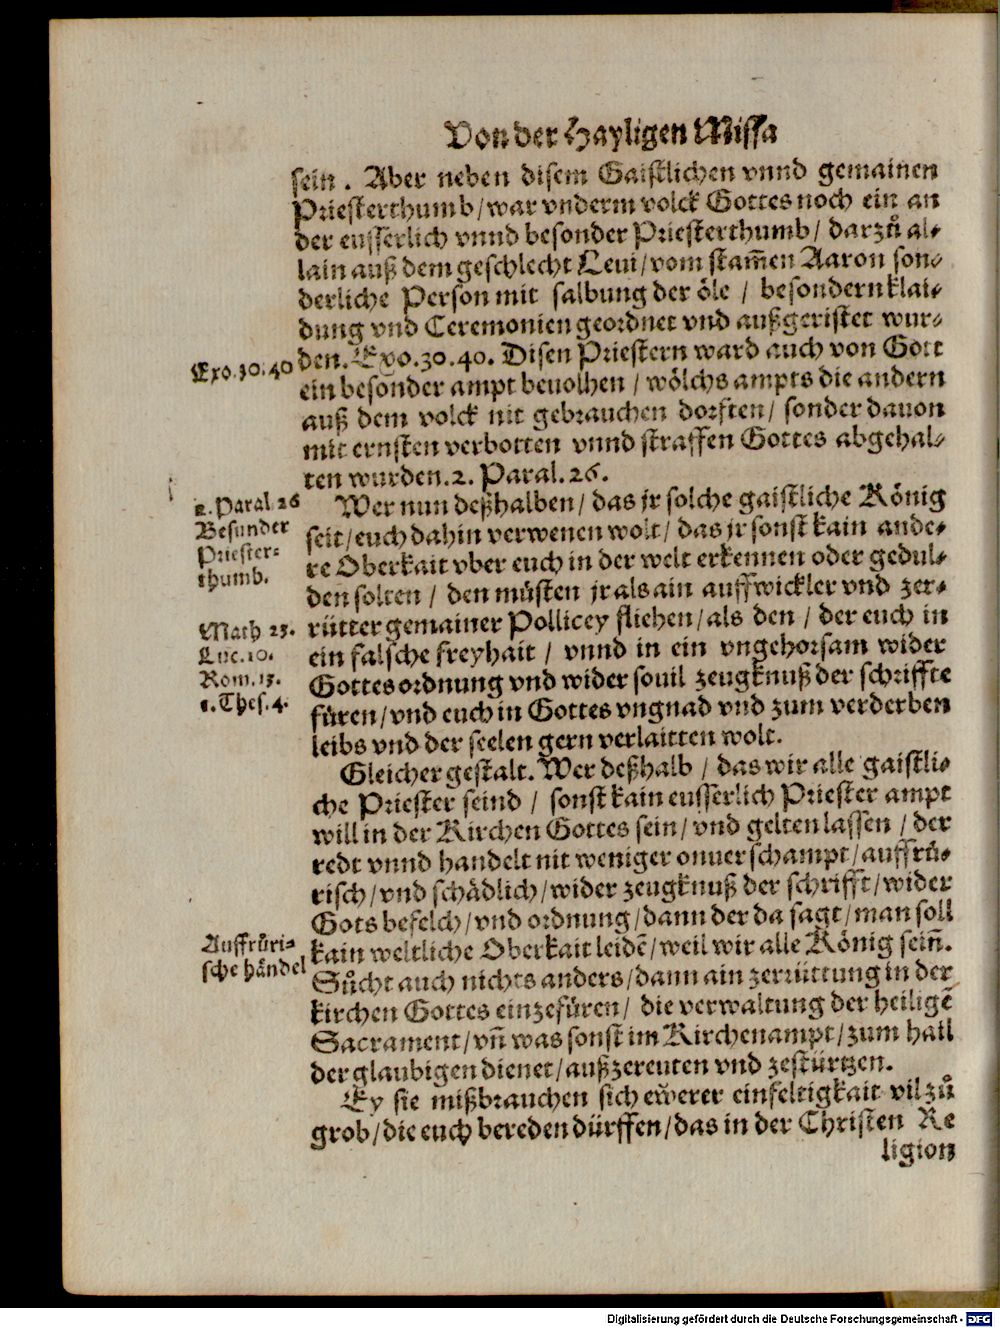 Von der Hayligen Missa
sein. Aber neben disem Gaistlichen vnnd gemainen
Priesterthumb/war vnderm volck Gottes noch ein an
der eusserlich vnnd besonder Priesterthumb/ darzů al-
lain auß dem geschlecht Leui/vom stam̃en Aaron son-
derliche Person mit salbung der öle / besondern klai-
dung vnd Ceremonien geordnet vnd außgeristet wur-
Exo.30.40
den. Exo.30.40. Disen Priestern ward auch von Gott
ein besonder ampt beuolhen / wölchs ampts die andern
auß dem volck nit gebrauchen dorfften/ sonder dauon
mit ernsten verbotten vnnd straffen Gottes abgehal-
ten wurden.2. Paral.26.
2. Paral.26
Besunder
Priester-
thumb.
Wer nun deßhalben/ das jr solche gaistliche König
seit/euch dahin verwenen wolt/ das jr sonst kain ande-
re Oberkait vber euch in der welt erkennen oder gedul-
den solten / den müsten jr als ain auffwickler vnd zer-
Math 23.
Luc.10.
Rom.13.
1.Thes.4.
rütter gemainer Pollicey fliehen/als den / der euch in
ein falsche freyhait / vnnd in ein vngehorsam wider
Gottes ordnung vnd wider souil zeugknuß der schriffte
füren/vnd euch in Gottes vngnad vnd zum verderben
leibs vnd der seelen gern verlaitten wolt.
Gleicher gestalt. Wer deßhalb / das wir alle gaistli-
che Priester seind / sonst kain eusserlich Priester ampt
will in der Kirchen Gottes sein/vnd gelten lassen / der
redt vnnd handelt nit weniger onuerschampt/auffrů-
risch/vnd schädlich/wider zeugknuß der schrifft/wider
Gots befelch/vnd ordnung/dann der da sagt/man soll
Auffrůri-
sche händel
kain weltliche Oberkait leidẽ/weil wir alle König sein̄.
Sůcht auch nichts anders/dann ain zerrüttung in der
kirchen Gottes einzefüren/ die verwaltung der heiligẽ
Sacrament/vn̄ was sonst im Kirchenampt/zum hail
der glaubigen dienet/außzereuten vnd zestürtzen.
Ey sie mißbrauchen sich ewerer einfeltigkait vil zů
grob/die euch bereden dürffen/das in der Christen Re
ligion
Digitalisierung gefördert durch die Deutsche Forschungsgemeinschaft - DFG